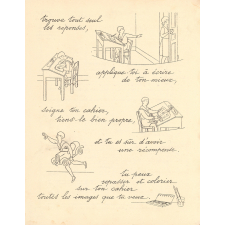 trouve tout seul
les réponses,
applique toi à écrire
de ton mieux,
soigne ton cahier,
tiens-le bien propre,
et tu es sûr d'avoir
une récompense.
Tu peux
repasser et colorier
sur ton cahier
toutes les images que tu veux.